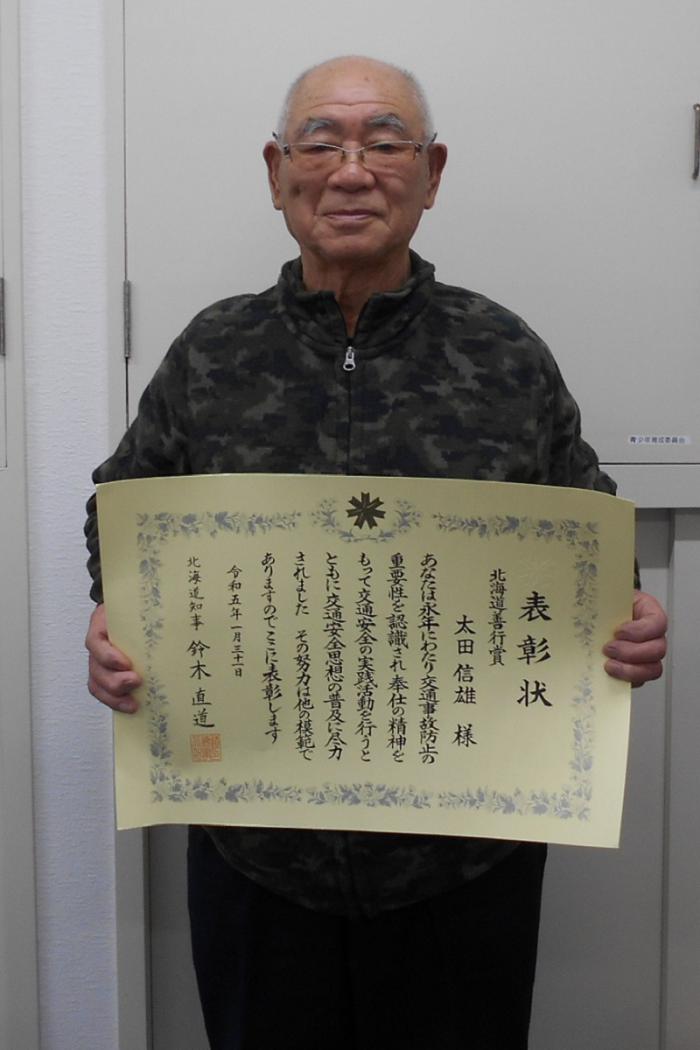 表彰状
北海道善行賞
太田信雄 様
あなたは永年にわたり交通事故防止の
重要性を認識され 奉仕の精神を
もって交通安全の実践活動を行うと
ともに交通安全思想の普及に尽力
されました その努力は他の模範で
ありますのでここに表彰します
令和五年一月三十一日
北海道知事 鈴木直道
青少年育成委員会